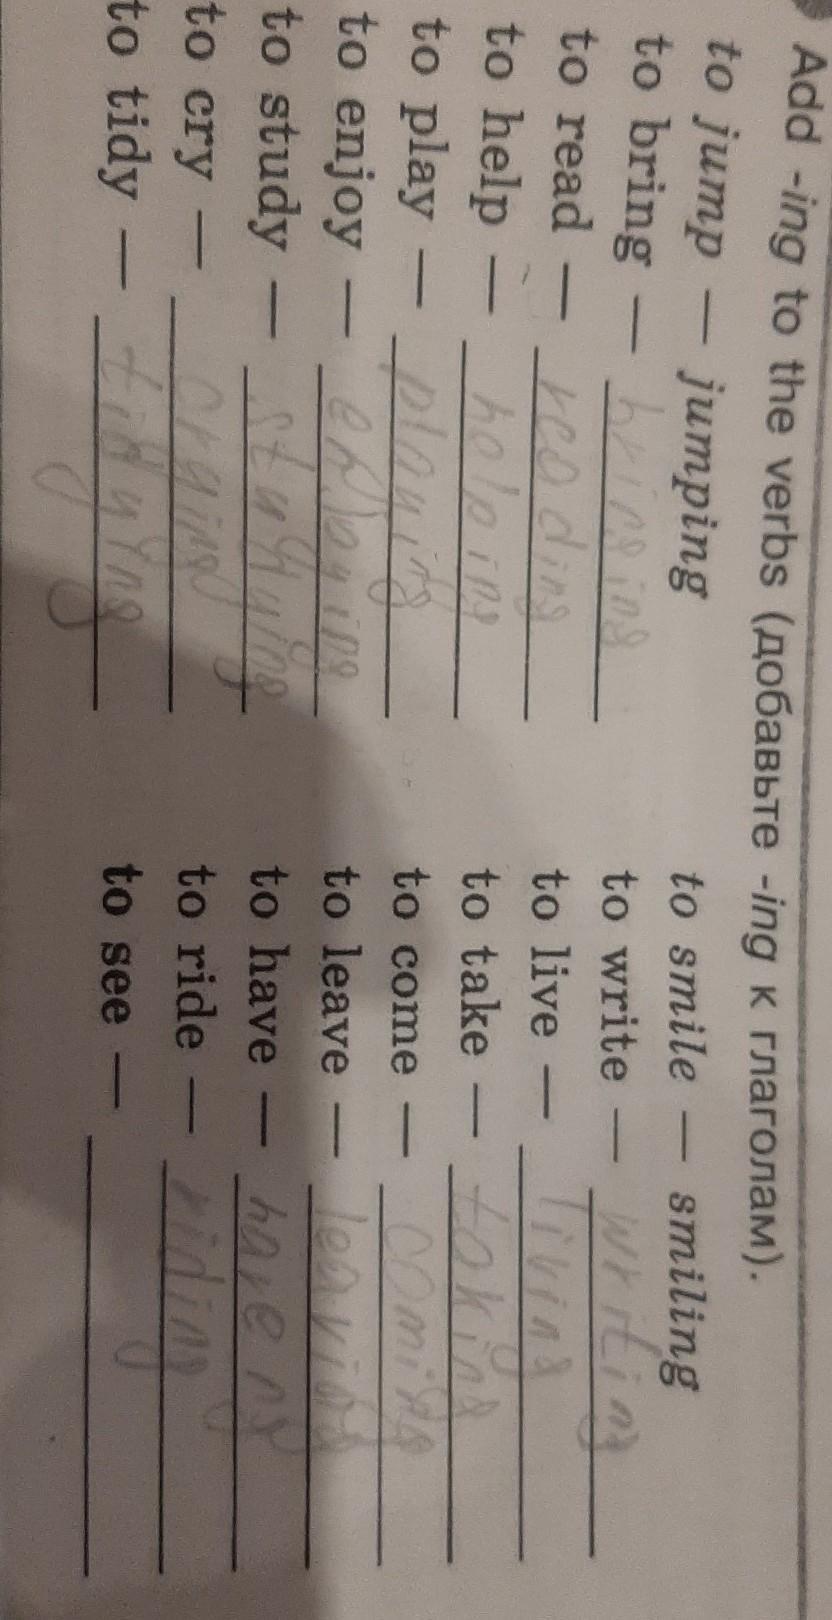 Add -ing to the verbs (добавьте -ing к глаголам).
to jump — jumping
to bring — bringing
to read — reading
to help — helping
to play — playing
to enjoy — enjoying
to study — studying
to cry — crying
to tidy — tidying
to smile — smiling
to write — writing
to live — living
to take — taking
to come — coming
to leave — leaving
to have —
to ride — riding
to see —